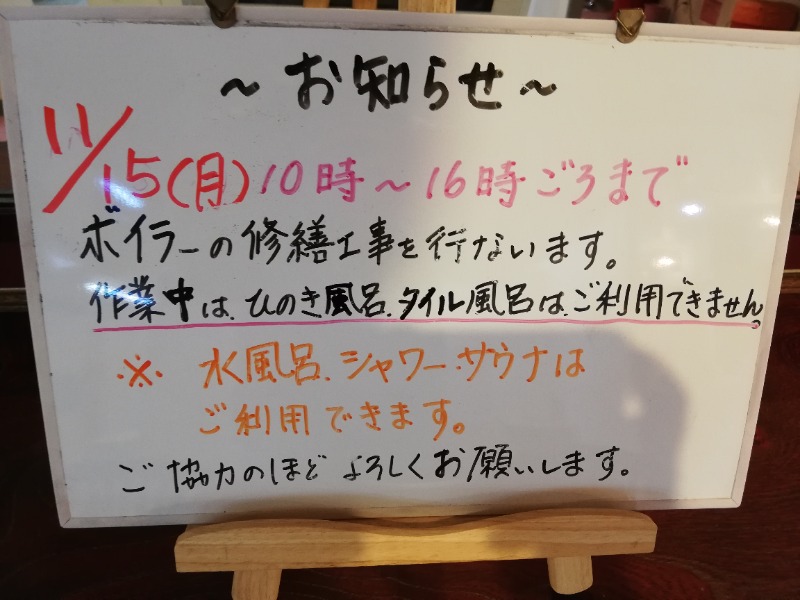 ～お知らせ～
11/15(月)10時～16時ごろまで
ボイラーの修繕工事を行ないます。
作業中は、ひのき風呂、タイル風呂は、ご利用できません。
※ 水風呂、シャワー・サウナは
ご利用できます。
ご協力のほどよろしくお願いします。